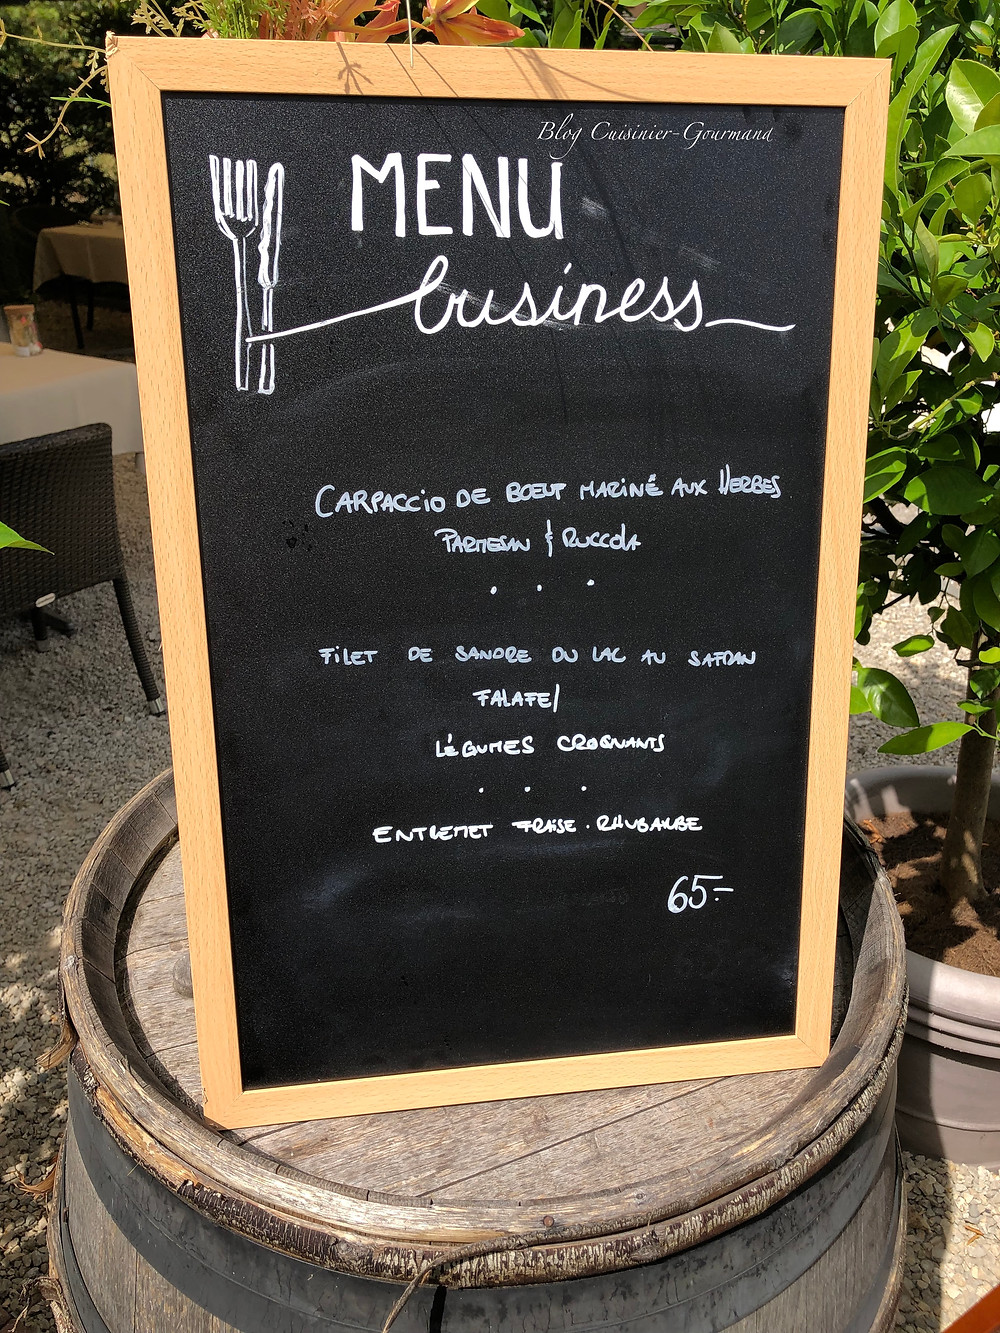 Blog Cuisinier-Gourmand
MENU
business
CARPACCIO DE BOEUF MARINÉ AUX HERBES
PARMESAN & RUCCOLA
. . .
FILET DE SANDRE DU LAC AU SAFRAN
FALAFEL
LÉGUMES CROQUANTS
. . .
ENTREMET FRAISE . RHUBARBE
65.-